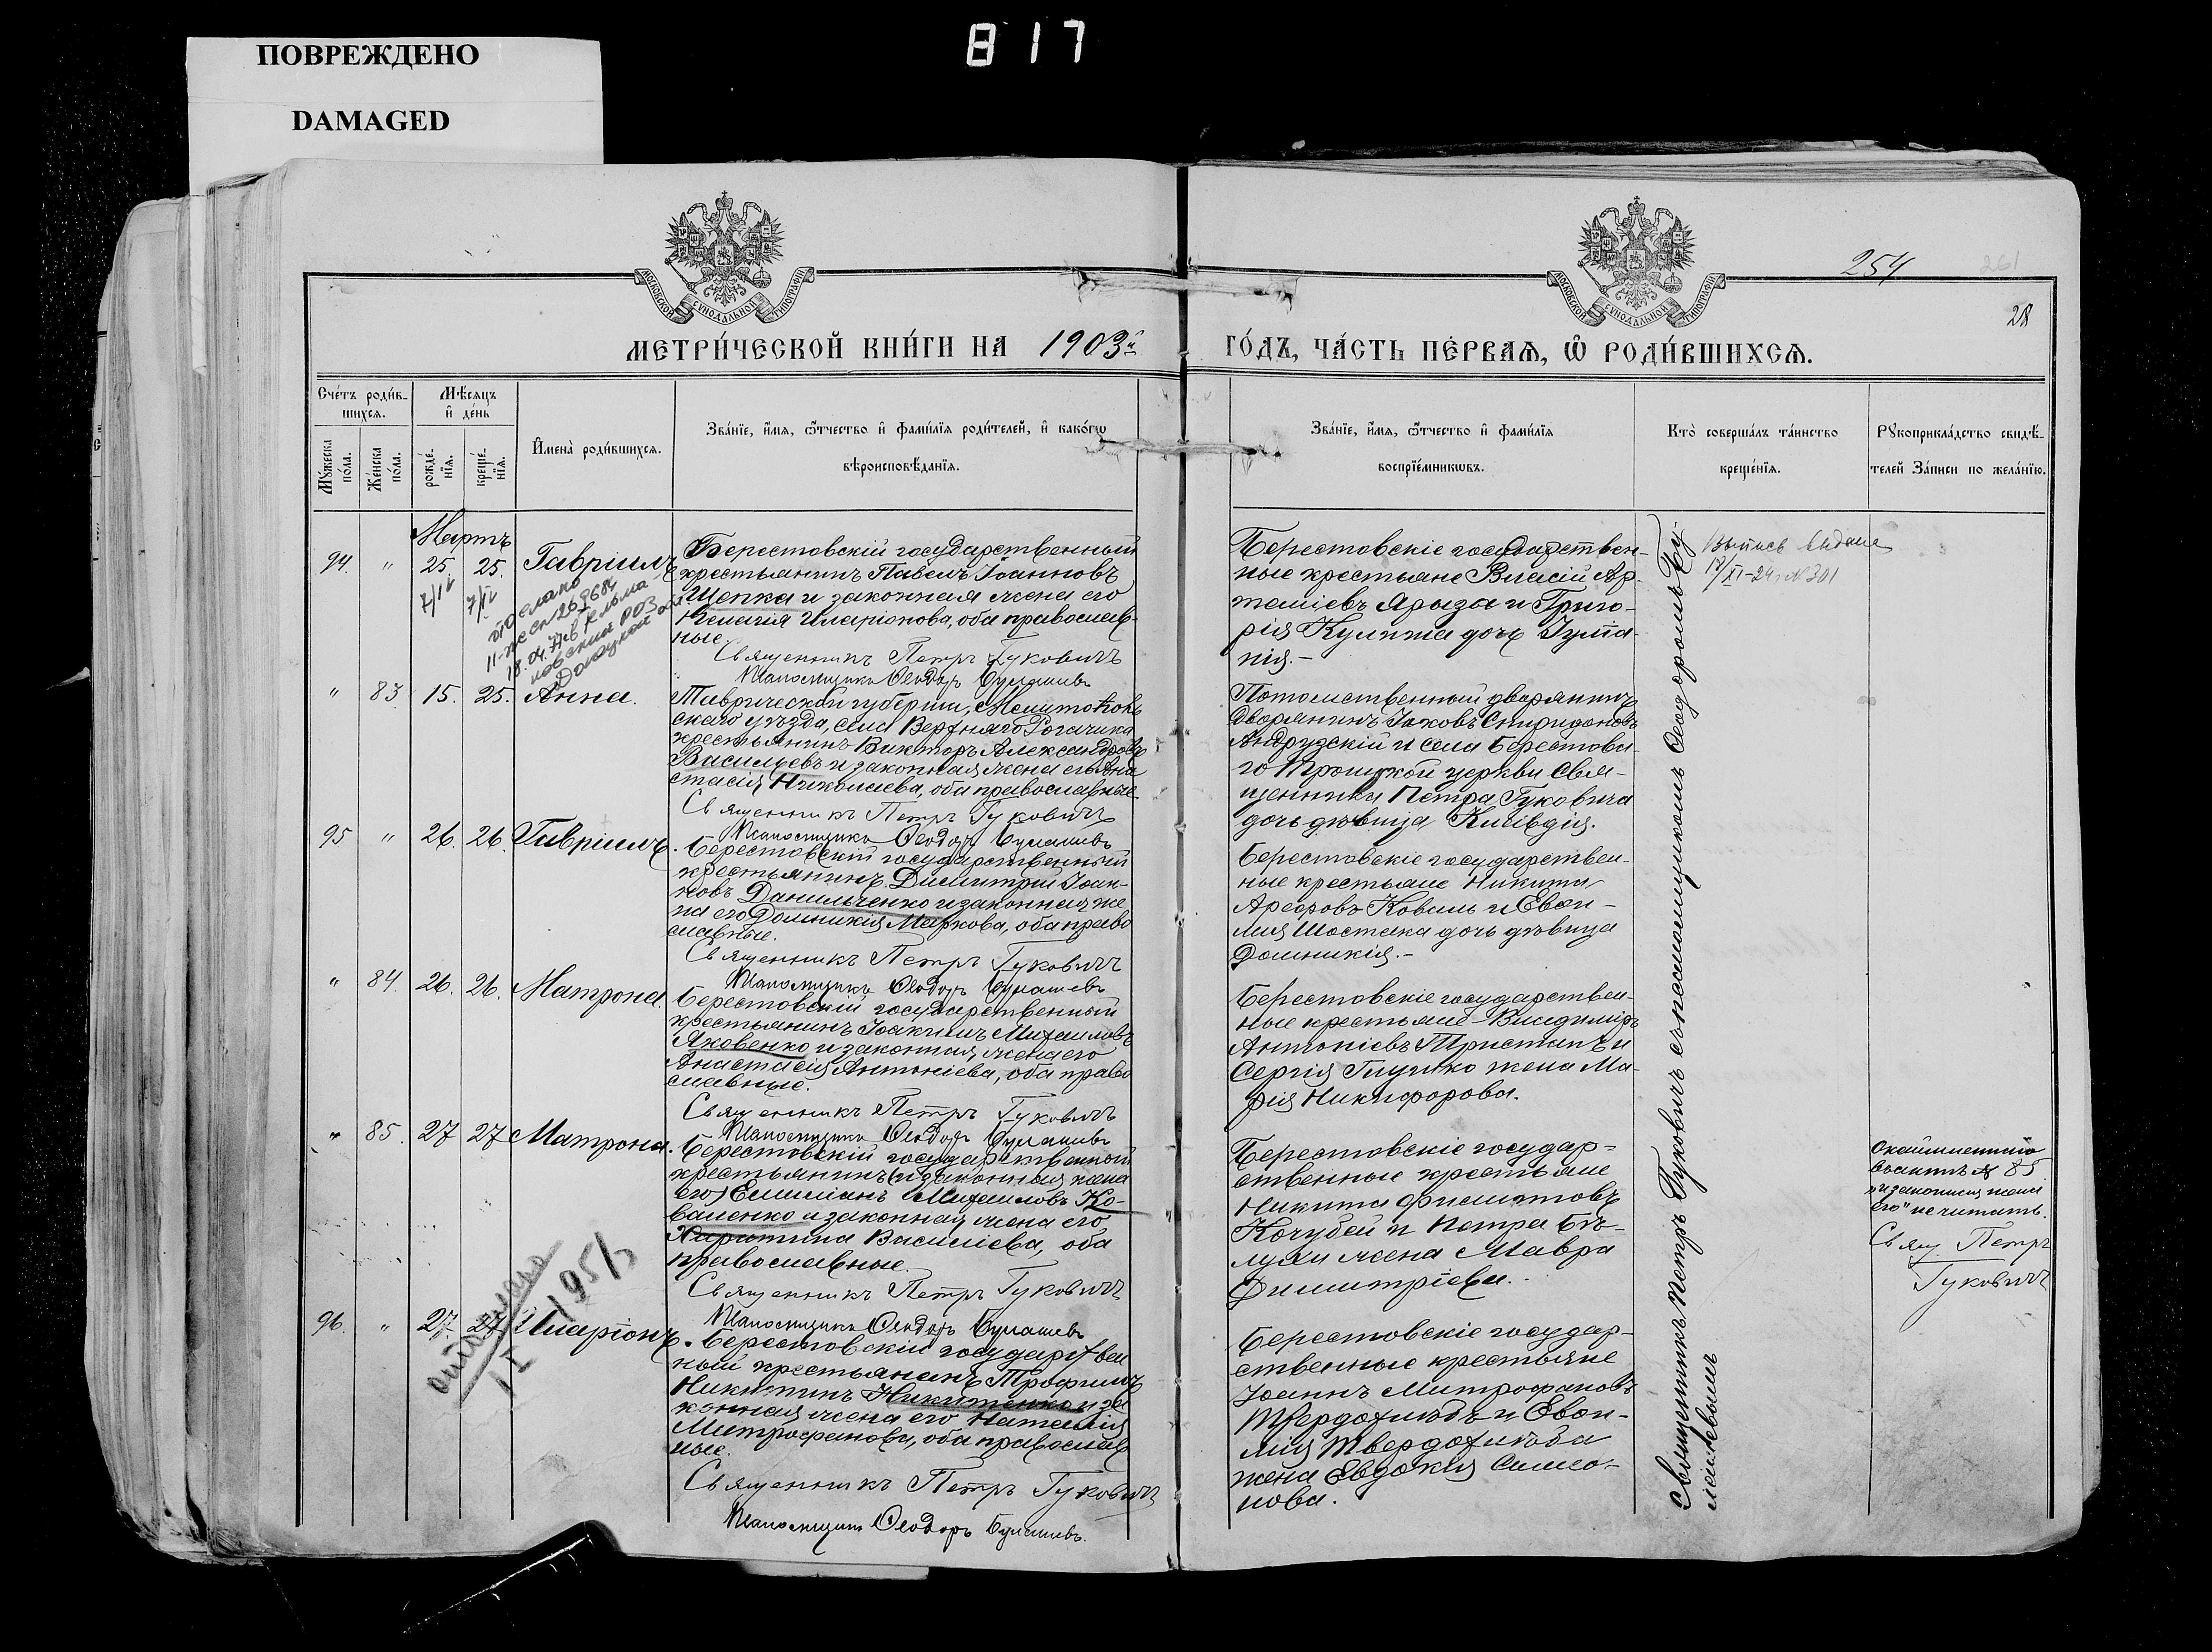 ПОВРЕЖДЕНО
DAMAGED
817
МОСКОВСКОЙ СУНОДАЛЬНОЙ ТИПОГРАФІИ
МОСКОВСКОЙ СУНОДАЛЬНОЙ ТИПОГРАФІИ
254
261
28
МЕТРИ́ЧЕСКОЙ КНИ́ГИ НА 1903й
ГО́ДЪ, ЧА́СТЬ ПЕ́РВАѦ, Ѡ҆ РОДИ́ВШИХСѦ.
Сче́тъ роди́в-
шихсѧ.
Мꙋ́жеска по́ла.
Же́нска по́ла.
Мѣ́сѧцъ
и҆ де́нь
рожде́-
нїѧ.
креще́-
нїѧ.
И҆мена̀ роди́вшихсѧ.
Зва́нїе, и҆́мѧ, ѻ҆́тчество и҆ фами́лїѧ роди́телей, и҆ како́гѡ
вѣроисповѣ́данїѧ.
Зва́нїе, и҆́мѧ, ѻ҆́тчество и҆ фами́лїѧ
воспрїе́мникѡвъ.
Кто̀ соверша́лъ та́инство
креще́нїѧ.
Рꙋкоприкла́дство свидѣ́-
телей За́писи по жела́нїю.
Мартъ
94. " 25. 25. Гавріилъ
7/IV 7/IV
Берестовскій государственный
крестьянинъ Павелъ Іоанновъ
Щепка и законная жена его
Пелагія Иларіонова, оба православ-
ные.
Священникъ Петръ Гуковичъ
Псаломщикъ Ѳеодоръ Булашевъ
Берестовскіе государствен-
ные крестьяне Власій Ар-
теміевъ Ярыза и Григо-
рія Кулиша дочь Іуліа-
нія.-
Выпись выдана
18/XI-24 г. № 301
" 83. 15. 25. Анна.
Таврической губерніи, Мелитополь
скаго уѣзда, села Верхняго Рогачика
крестьянинъ Викторъ Александровъ
Васильевъ и законная жена его Ана
стасія Николаева, оба православные.
Священникъ Петръ Гуковичъ
Псаломщикъ Ѳеодоръ Булашевъ
Потомственный дворянинъ
дворянинъ Іаковъ Спиридоновъ
Андрузскій и села Берестова-
го Троицкой церкви Свя-
щенника Петра Гуковича
дочь дѣвица Клавдія.
95 " 26. 26. Гавріилъ.
Берестовскій государственный
крестьянинъ Димитрій Іоан-
новъ Данильченко и законная же
на его Домникія Маркова, оба право
славные.
Священникъ Петръ Гуковичъ
Псаломщикъ Ѳеодоръ Булашевъ
Берестовскіе государствен-
ные крестьяне Никита
Коваль и Евѳи-
мія Шостака дочь дѣвица
Домникія.-
" 84. 26. 26. Матрона.
Берестовскій государственный
крестьянинъ Іоакимъ Михаиловъ
Яковенко и законная жена его
Анастасія Антоніева, оба право
славные.
Священникъ Петръ Гуковичъ
Псаломщикъ Ѳеодоръ Булашевъ
Берестовскіе государствен-
ные крестьяне Владиміръ
Антоніевъ Тристанъ и
Сергія Глушко жена Ма-
рія Никифорова.
" 85. 27 27 Матрона.
Берестовскій государственный
крестьянинъ (и законная жена
его) Емиліанъ Михаиловъ Ко-
валенко и законная жена его
Харитина Василіева, оба
православные.
Священникъ Петръ Гуковичъ
Псаломщикъ Ѳеодоръ Булашевъ
Берестовскіе государ-
ственные крестьяне
Никита Филиповъ
Кочубей и Петра Бѣ-
лухи жена Мавра
Димитріева.
въ актѣ № 85
"и законная жена
его" не читать.
Свящ. Петръ
Гуковичъ
96. " 27. 27. Иларіонъ.
1951
Берестовскій государствен
ный крестьянинъ Трофимъ
Никитинъ Никитенко и за
конная жена его Наталія
Митрофанова, оба православ
ные.
Священникъ Петръ Гуковичъ
Псаломщикъ Ѳеодоръ Булашевъ.
Берестовскіе государ-
ственные крестьяне
Іоаннъ Митрофановъ
Твердохлѣбъ и Евѳи-
мія Твердохлѣба
жена Евдокія Симео-
нова.
Священникъ Петръ Гуковичъ съ псаломщикомъ Ѳеодоромъ Бу-
лашевымъ